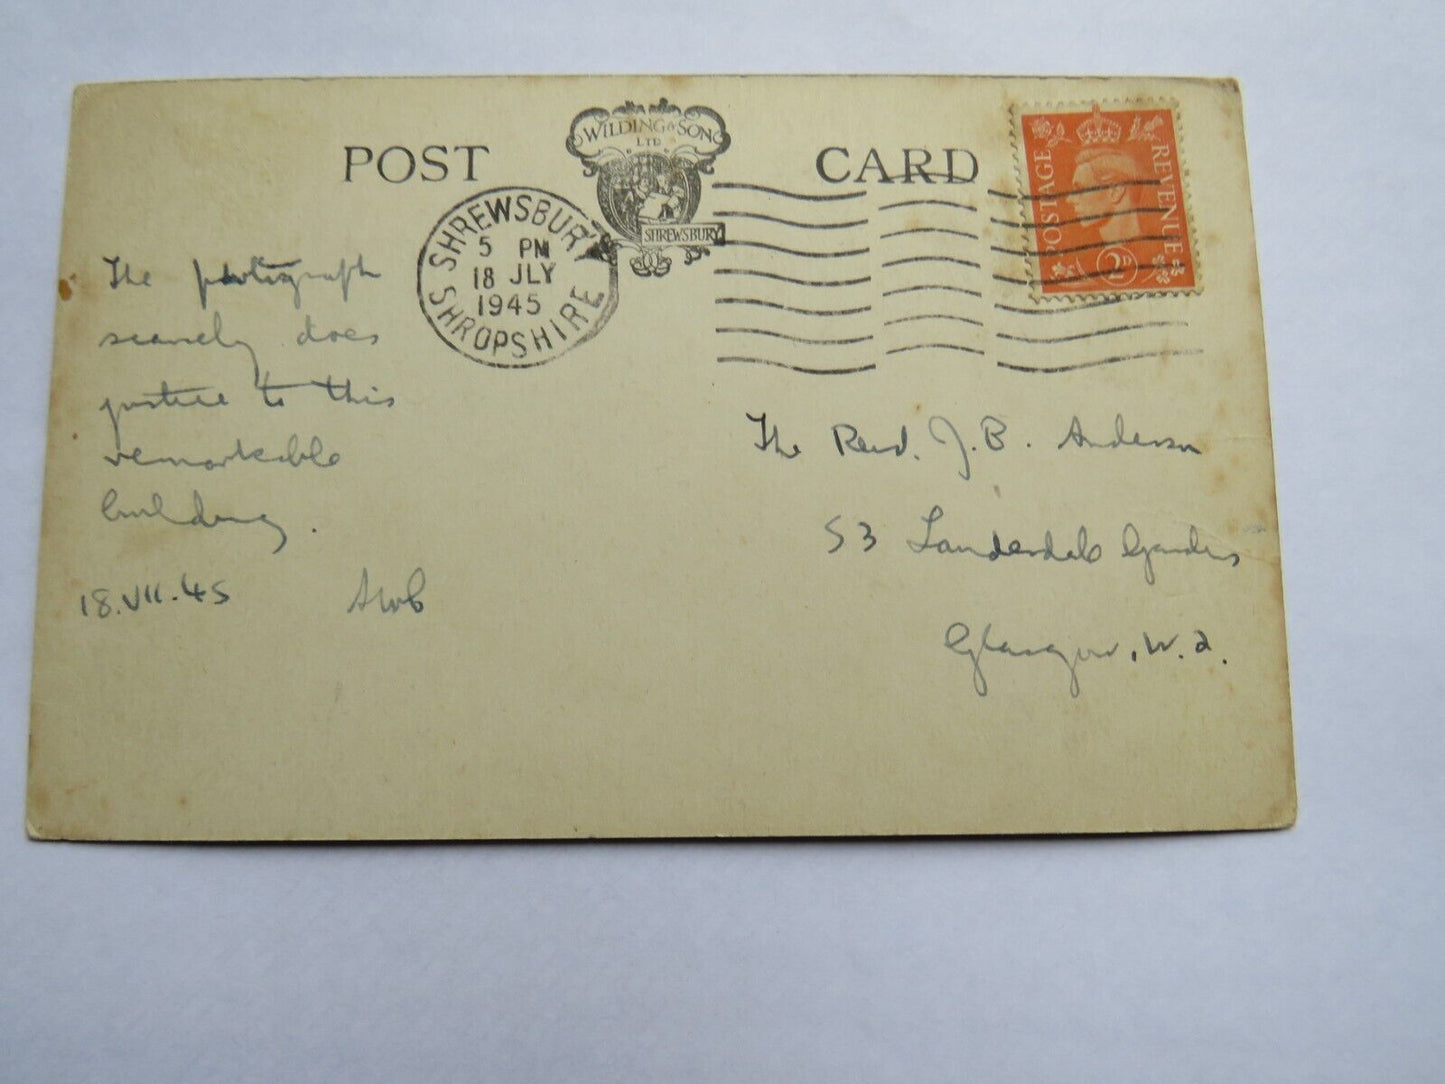 POST CARD
WILDING & SON
LTD
SHREWSBURY
SHREWSBURY
5 PM
18 JLY
1945
SHROPSHIRE
POSTAGE REVENUE
2D
The photograph
scarcely does
justice to this
remarkable
building.
18.VII.45
The Revd. J.B. Anderson
53 Lauderdale Gardens
Glasgow, W.2.